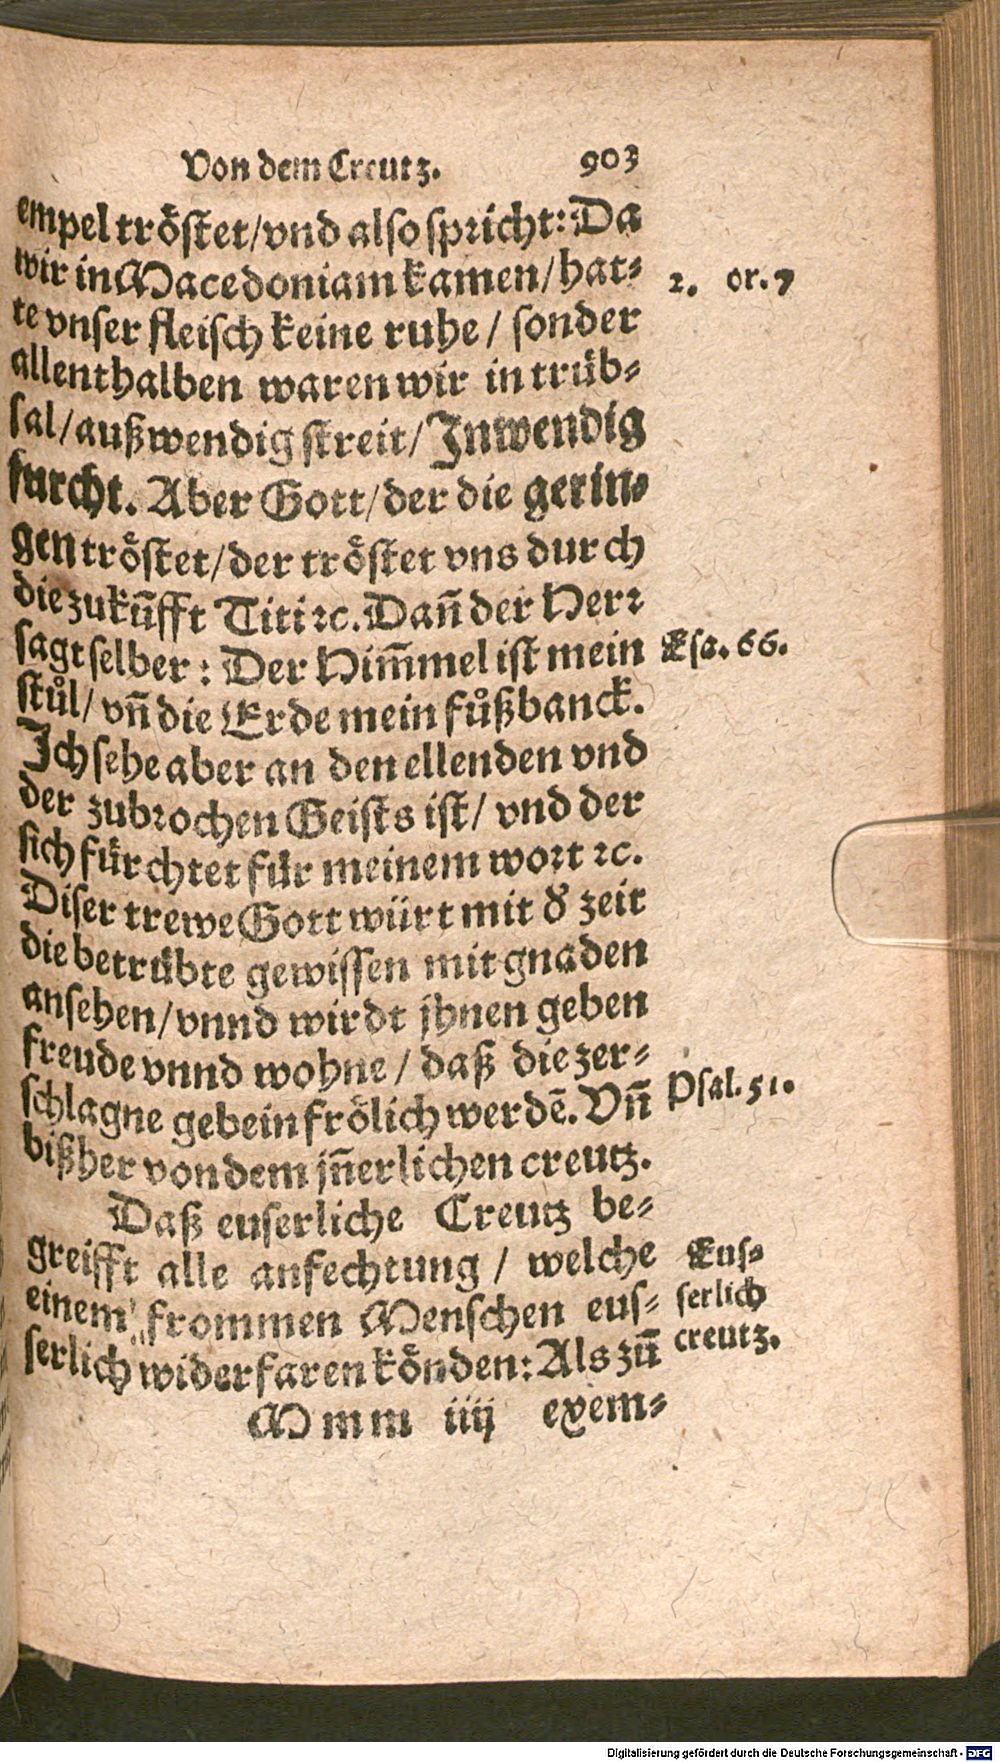 Von dem Creutz. 903
empel tröstet/vnd also spricht: Da
wir in Macedoniam kamen/hat⸗
te vnser fleisch keine ruhe / sonder
allenthalben waren wir in trüb⸗
sal/außwendig streit/Inwendig
furcht. Aber Gott/der die gerin⸗
gen tröstet/der tröstet vns durch
die zukũfft Titi ꝛc. Dañ der Herr
sagt selber: Der Him̃mel ist mein
stůl/ vñ die Erde mein fůßbanck.
Ich sehe aber an den ellenden vnd
der zubrochen Geists ist/ vnd der
sich fürchtet für meinem wort ꝛc.
Diser trewe Gott würt mit d' zeit
die betrübte gewissen mit gnaden
ansehen/vnnd wirdt jhnen geben
freude vnnd wohne / daß die zer⸗
schlagne gebein frölich werdẽ. Vñ
bißher von dem jñerlichen creutz.
Daß euserliche Creutz be⸗
greifft alle anfechtung / welche
einem frommen Menschen eus⸗
serlich widerfaren könden: Als zũ
Mmm iiij exem⸗
2. or. 7
Esa. 66.
Psal. 51.
Eus⸗
serlich
creutz.
Digitalisierung gefördert durch die Deutsche Forschungsgemeinschaft - DFG